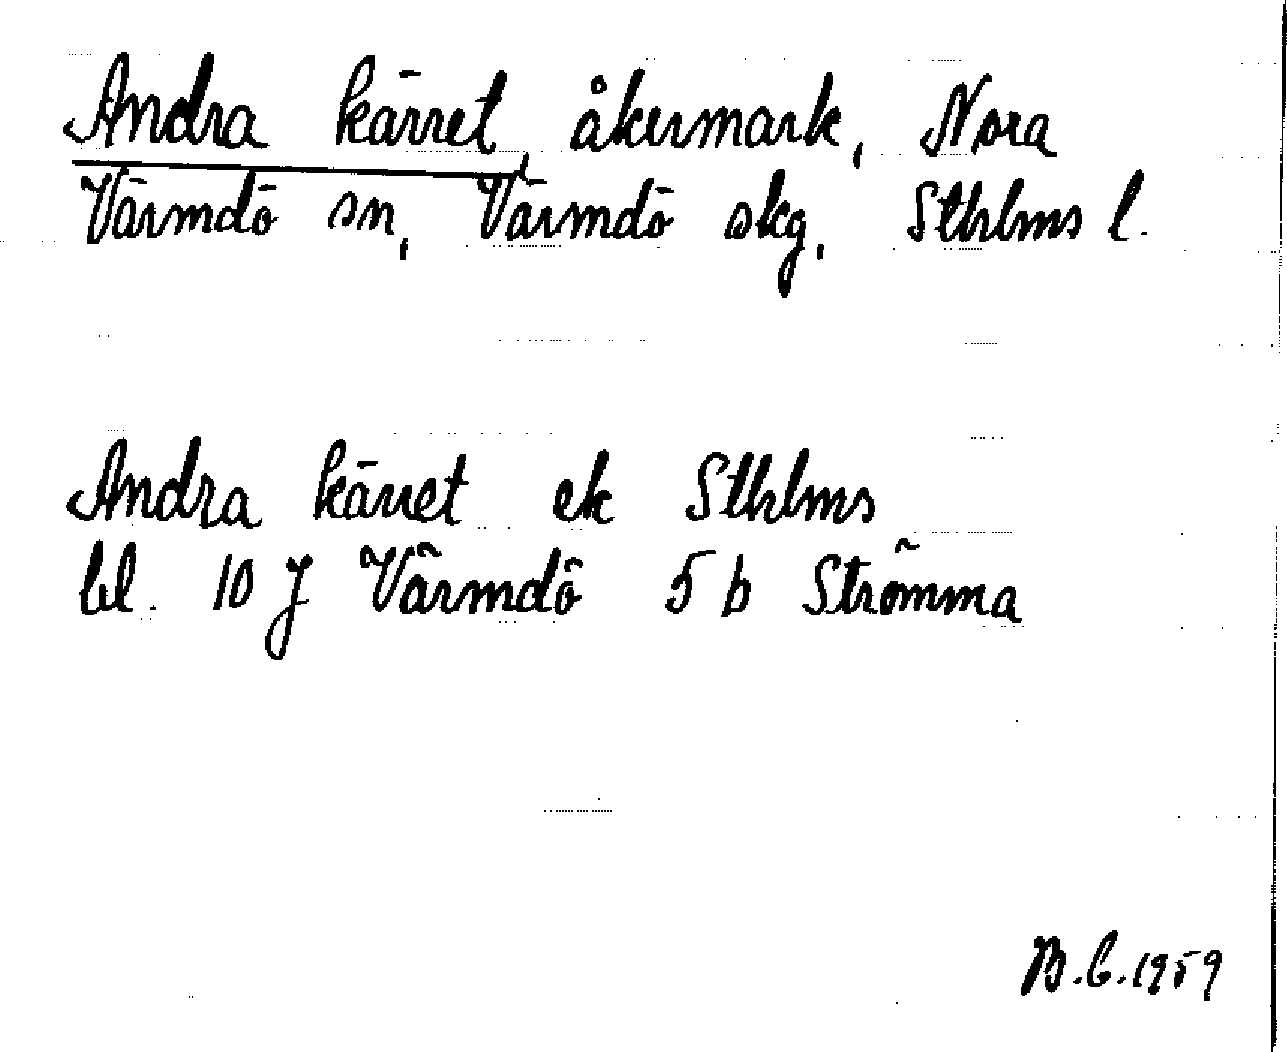 Andra kärret, åkermark, Nora
Värmdö sn, Värmdö skg, Sthlms l.
Andra kärret ek Sthlms
bl. 10 J Värmdö 5 b Strömma
B.C.1959